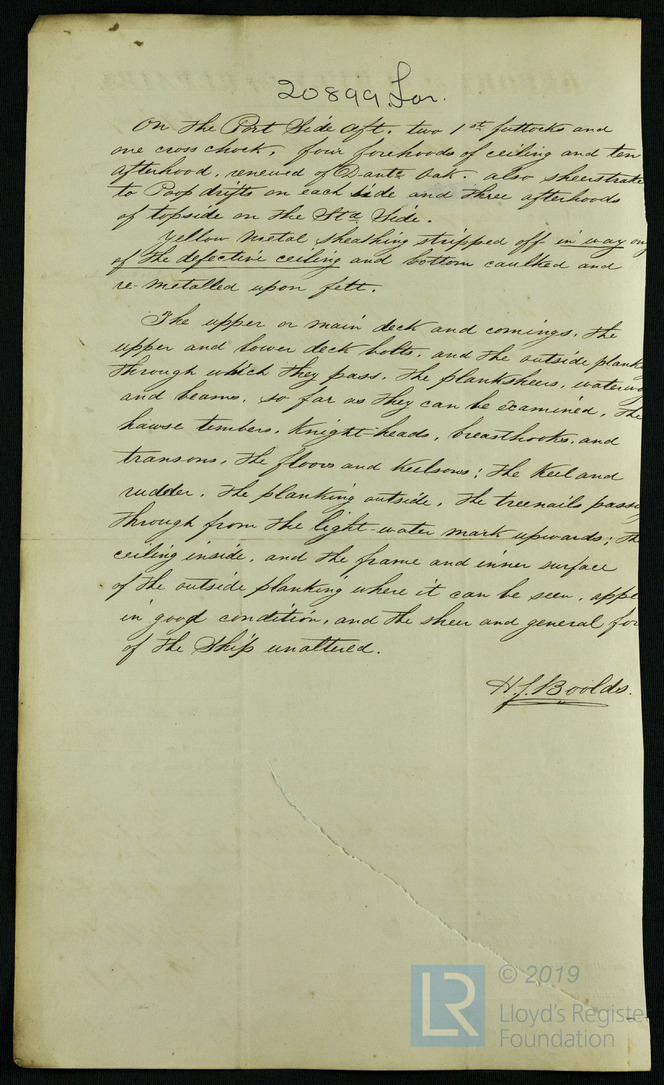 20899 Lon.
On the Port Side aft, two 1st futtocks and
one cross chock, four forehoods of ceiling and ten
afterhood, renewed of Dantc Oak. also sheerstrake
to Poop drifts on each side and three afterhoods
of topside on the Std Side.
Yellow metal sheathing stripped off in way on
of the defective ceiling and bottom caulked and
re-metalled upon felt.
The upper or main deck and comings, the
upper and lower deck bolts, and the outside plank
through which they pass, the planksheers, waterwa
and beams, so far as they can be examined, the
hawse timbers, Knight-heads, breasthooks, and
transons, the floors and Keelsons; the Keel and
rudder, the planking outside, the treenails passi
through from the light-water mark upwards; the
ceiling inside, and the frame and inner surface
of the outside planking where it can be seen, appe
in good condition, and the sheer and general for
of the Ship unaltered.
LR
© 2019
Lloyd's Register
Foundation